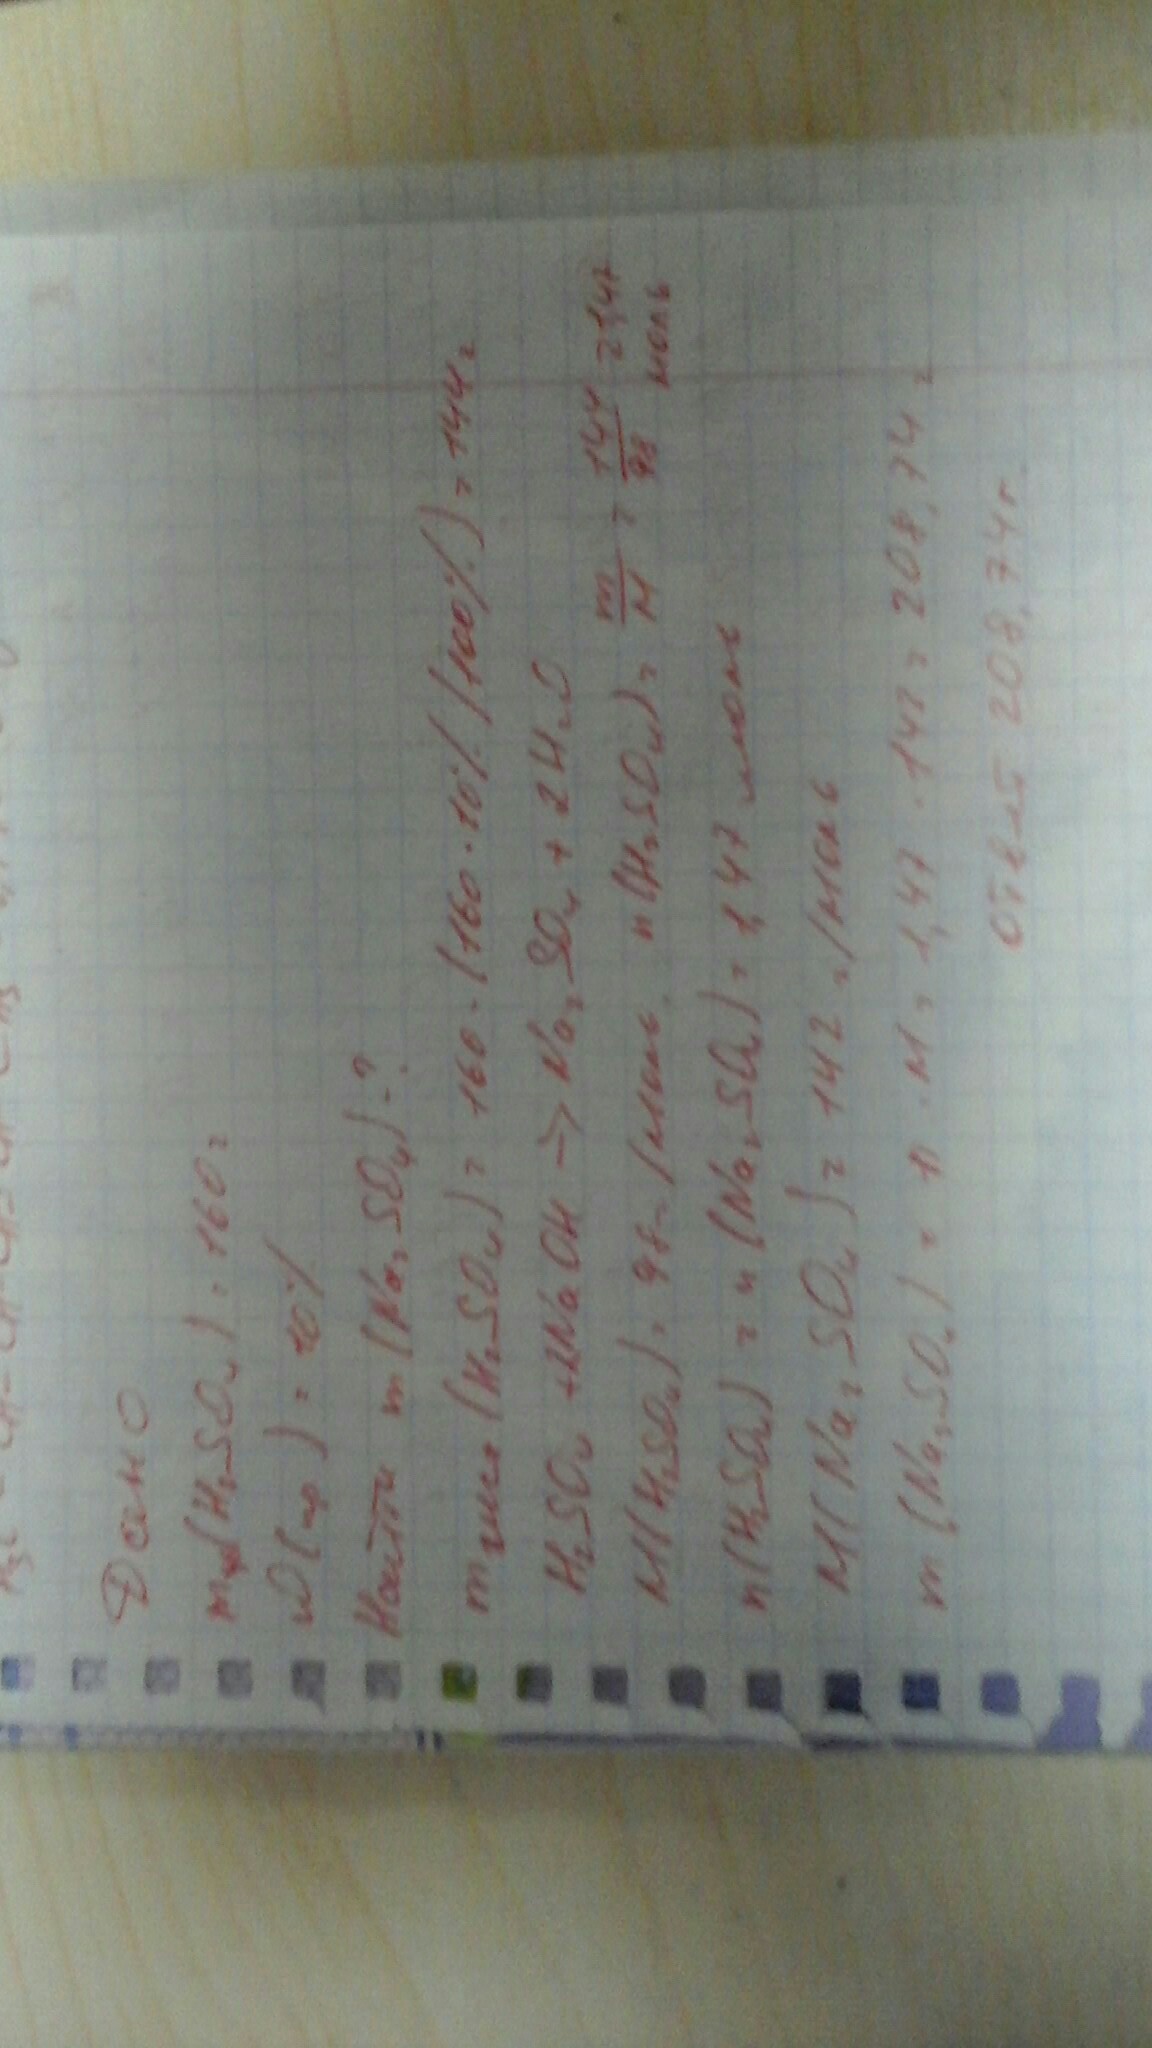 Дано
mр(H₂SO₄) = 160 г
ω(пр) = 10%
Найти m(Na₂SO₄)-?
mчист(H₂SO₄) = 160-(160·10%/100%) = 144 г
H₂SO₄ + 2NaOH → Na₂SO₄ + 2H₂O
M(H₂SO₄) = 98 г/моль n(H₂SO₄) = m/M = 144/98 = 1,47 моль
n(H₂SO₄) = n(Na₂SO₄) = 1,47 моль
M(Na₂SO₄) = 142 г/моль
m(Na₂SO₄) = n·M = 1,47·142 = 208,74 г
Ответ 208,74 г